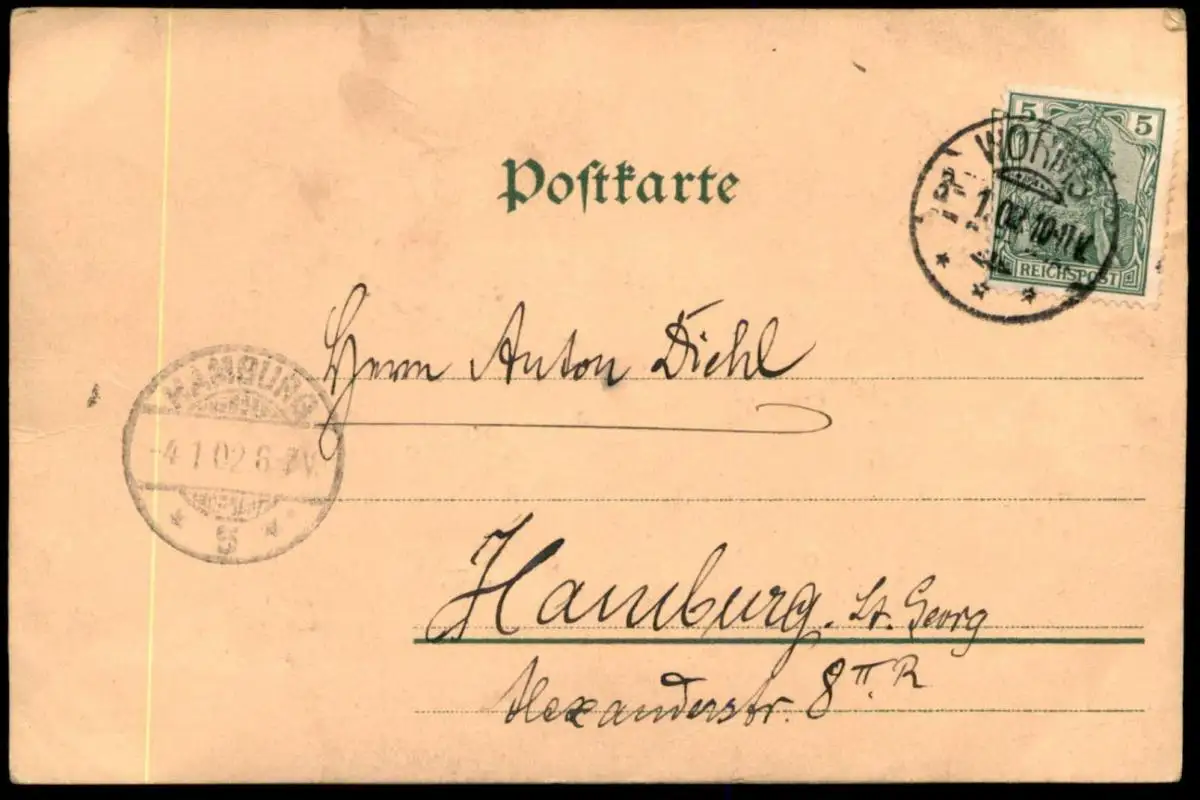 Postkarte
5 5
REICHSPOST
WORMS
3. 1. 02. 10-11 V.
Herrn Anton Diehl
HAMBURG
-4.1.02 6-7V.
Hamburg. St. Georg
Alexanderstr. 8 II. R